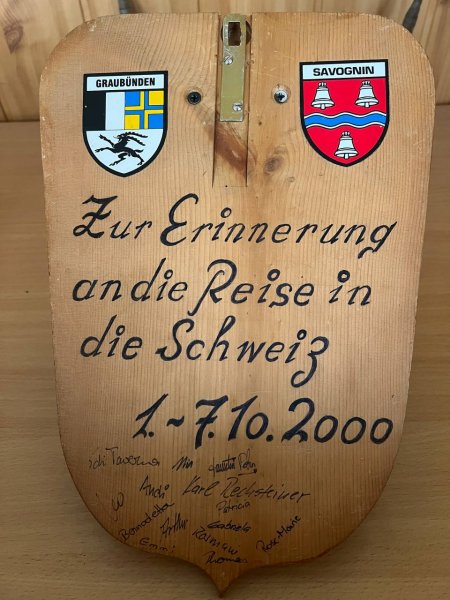 GRAUBÜNDEN
SAVOGNIN
Zur Erinnerung
an die Reise in
die Schweiz
1.-7.10.2000
Taverna
Andi Karl Rechsteiner
Patricia
Bernadetta Arthur Gabriela
Rose-Marie
Emmi Thomas